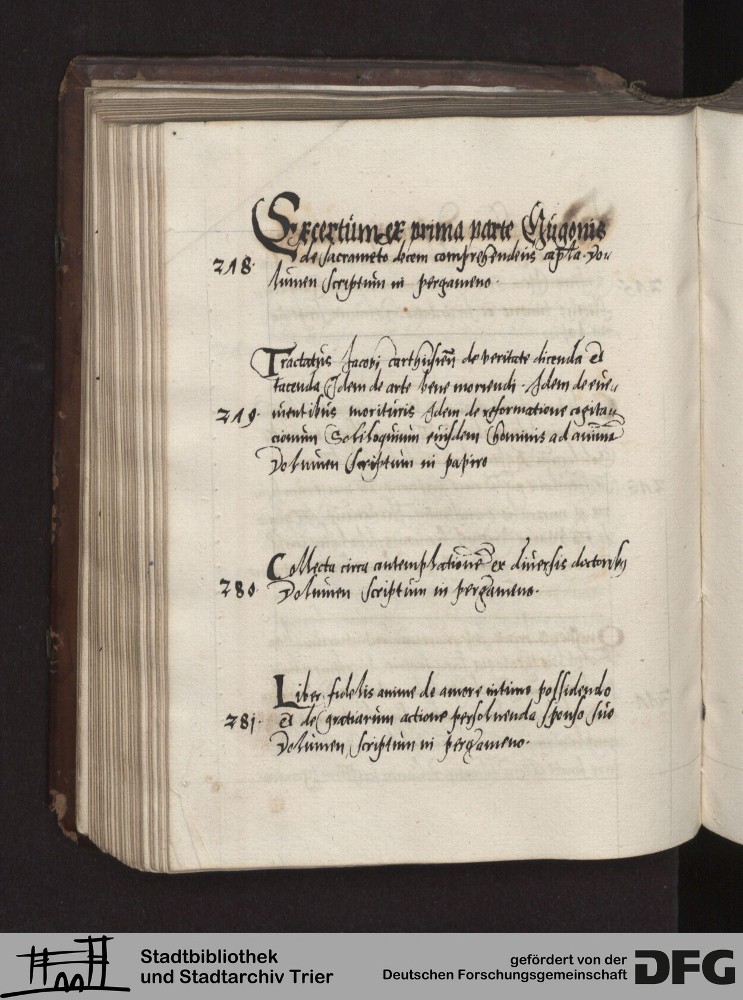 Excertum ex prima parte Hugonis
218. de sacrameto decem comprehendens capta. Vo-
lumen scriptum in pergameno.
Tractatus Jacobi carthusien̄ de veritate dicenda et
tacenda Idem de arte bene moriendi. Idem de eue-
219. nientibus morituris Idem de reformatione cogita-
cionum Soliloquium eiusdem hominis ad animā
Volumen scriptum in papiro
Collecta circa contemplationē ex diuersis doctoribꝫ
280. Volumen scriptum in pergameno.
Liber fidelis anime de amore intimo possidendo
281. et de gratiarum actione persoluenda sponso suo
Volumen scriptum in pergameno.
Stadtbibliothek
und Stadtarchiv Trier
gefördert von der
Deutschen Forschungsgemeinschaft
DFG